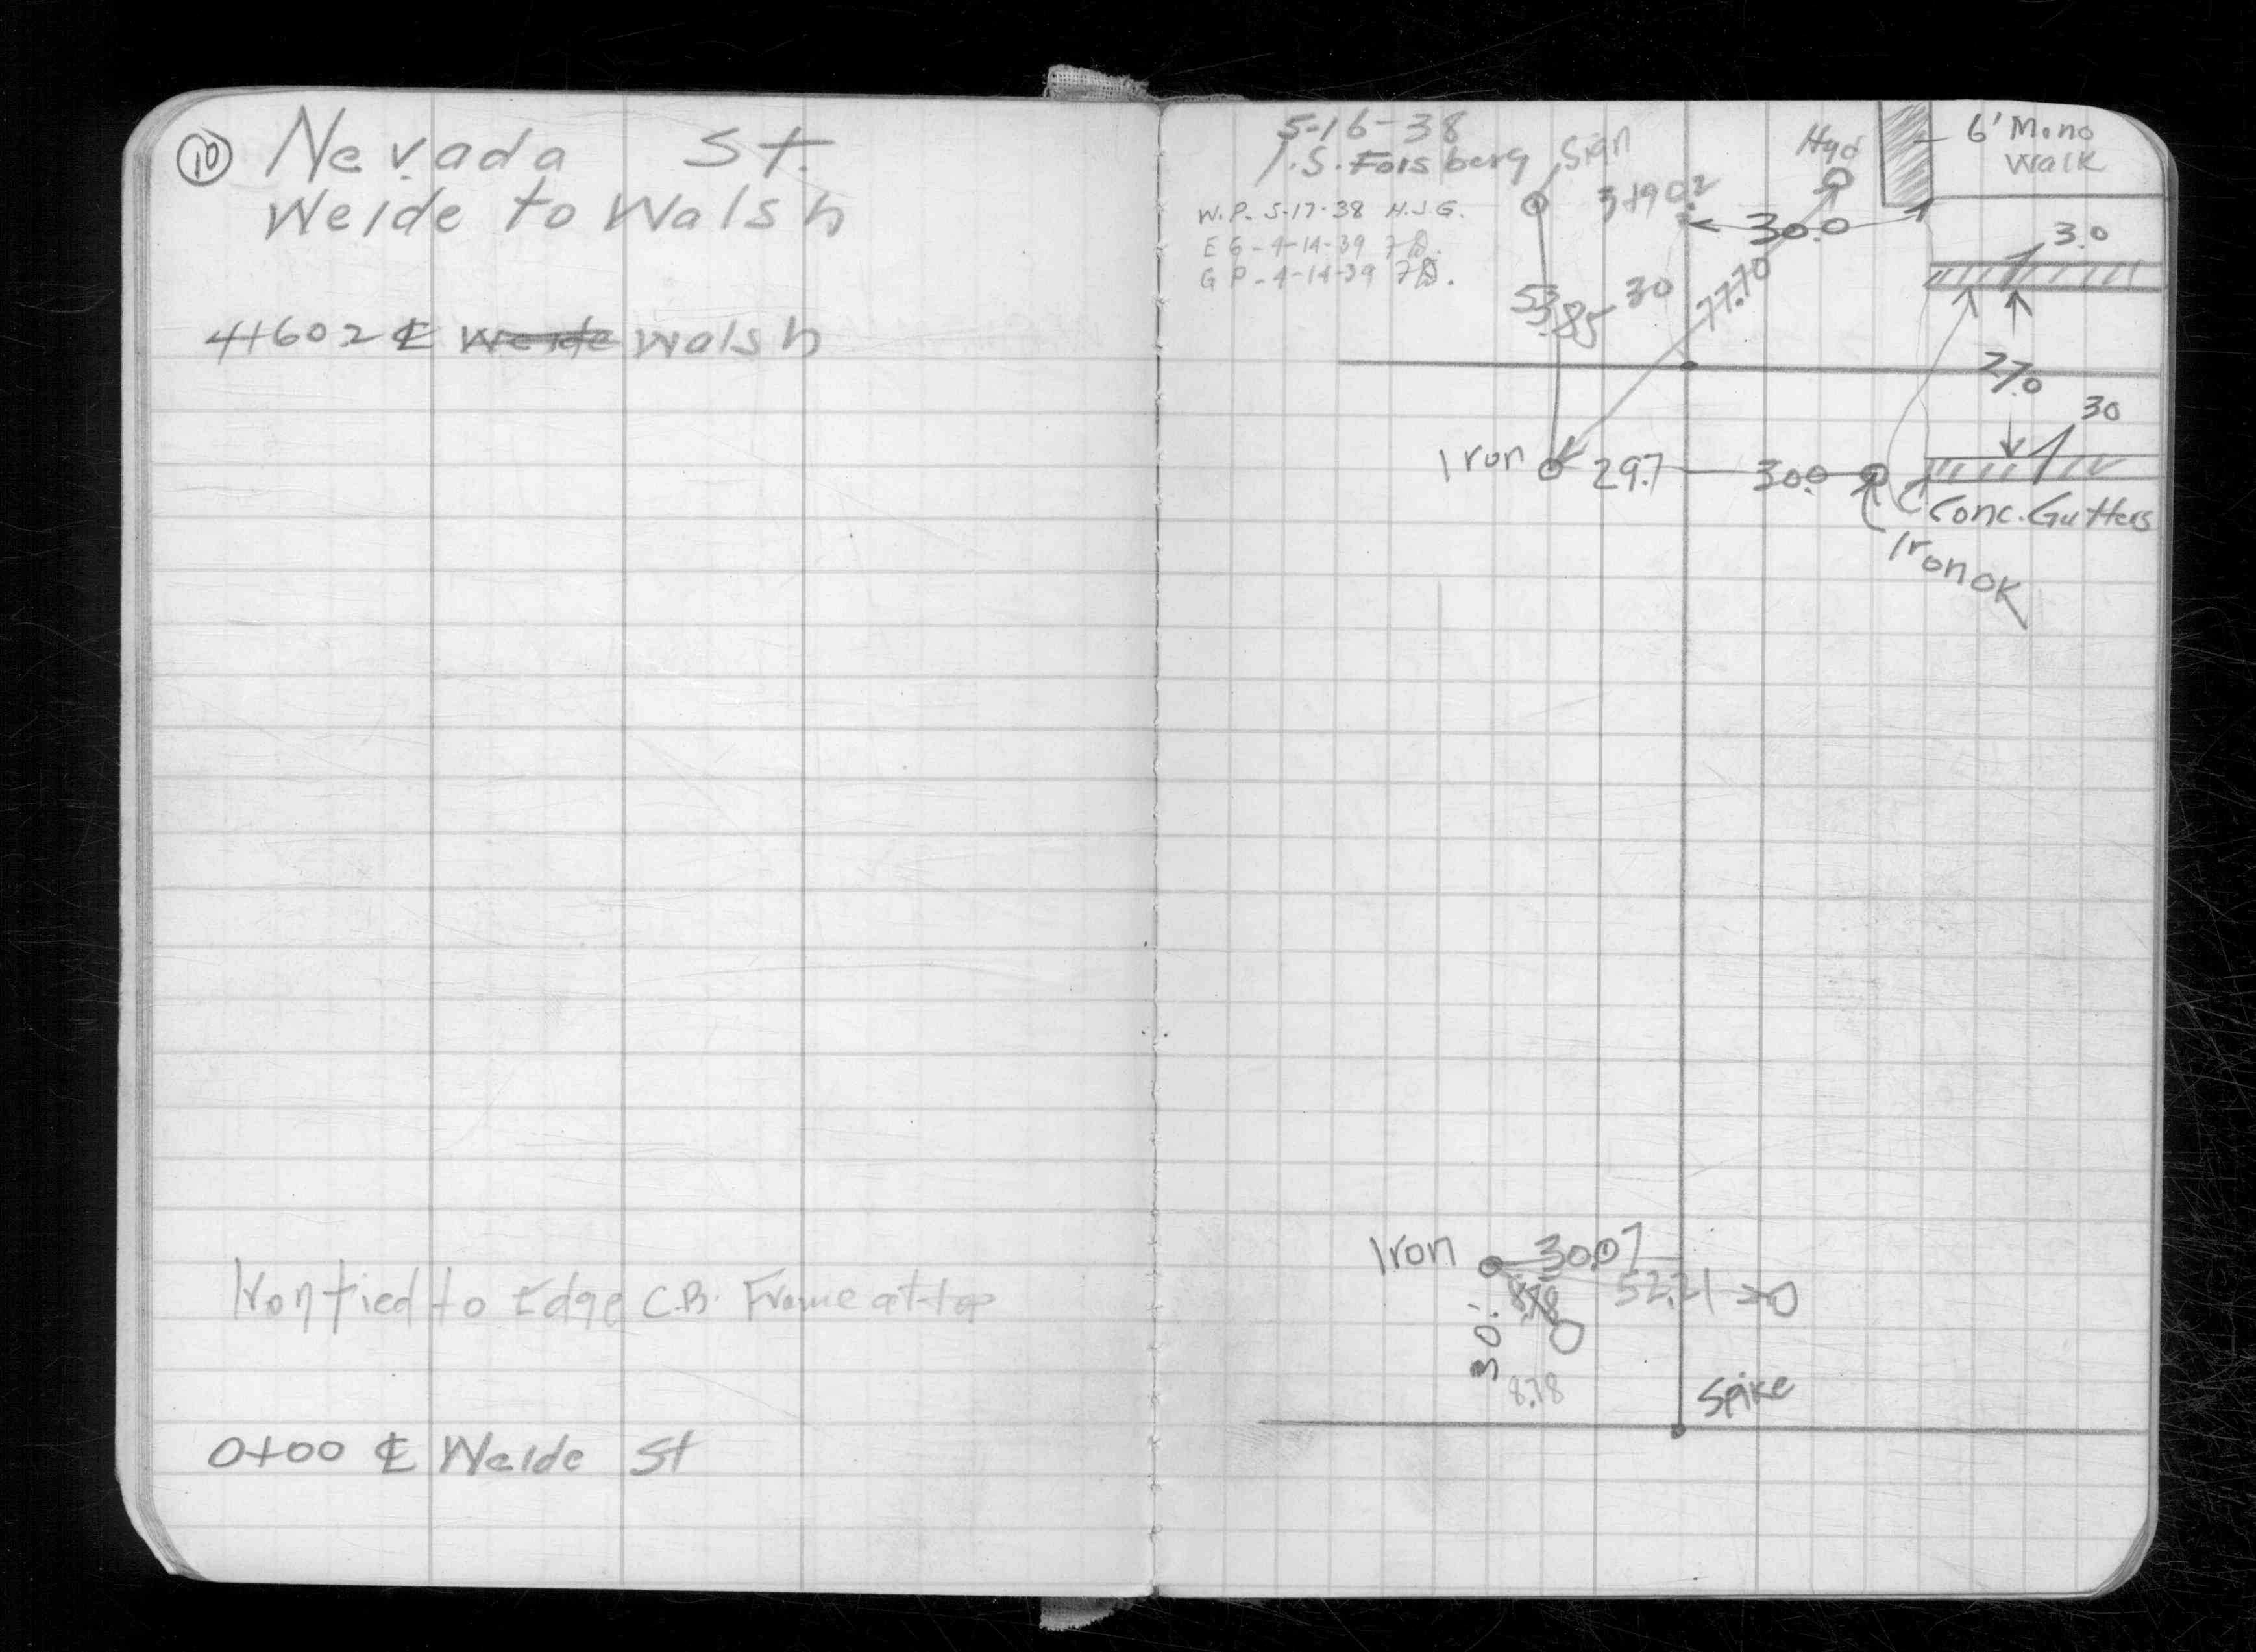 10 Nevada St.
Weide to Walsh
4+602 ℄ Weide Walsh
Iron tied to Edge C.B. Frame at top
0+00 ℄ Weide St
5-16-38
J.S. Forsberg
W.P. 5-17-38 H.J.G.
E G - 4-14-39
G P - 4-14-39
Sign
Hyd
6' Mono
Walk
3+902
30.0
3.0
53.85
30
77.70
27.0
30
Iron
29.7
30.0
Conc. Gutters
Iron OK
Iron
30.07
8.78
52.21
30.
8.78
Spike